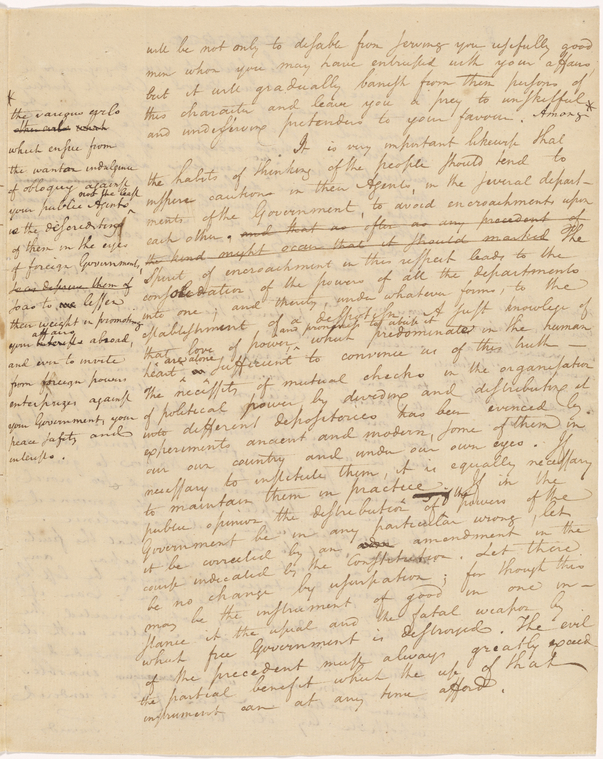 will be not only to disable from serving you usefully good
men whom you may have entrusted with your affairs,
but it will gradually banish from them persons of
this character and leave you a prey to unskilful
and undeserving pretenders to your favour. Among *
It is very important likewise that
the habits of thinking of the people should tend to
inspire caution in their Agents, in the several depart-
ments of the Government, to avoid encroachments upon
each other. and that as often as any precedent of
the kind might occur that it should marked The
Spirit of encroachment in this respect leads to the
consolidation of the powers of all the departments
into one; and thereby, under whatever forms, to the
establishment of a despotism. A just knowlege of
and proneness to abuse it
that love of power which predominates in the human
are alone
heart sufficient to convince us of this truth —
The necessity of mutual checks in the organisation
of political power, by dividing and distributing it
into different depositories has been evinced by
experiments ancient and modern, some of them in
our our country and under our own eyes. If
necessary to institute them, it is equally necessary
to maintain them in practice. If in the
public opinion the distribution of the powers of the
Government be in any particular wrong, let
it be corrected by an amendment in the
course indicated by the Constitution. Let there
be no change by usurpation; for though this
may be the instrument of good in one in-
stance it the usual and the fatal weapon by
which free Government is destroyed. The evil
of the precedent must always greatly exceed
the partial benefit which the use of that
instrument can at any time afford.
*
the various evils
which ensue from
the wanton indulgence
of obloquy against
not the least
your public Agents
is the discrediting
of them in the eyes
of foreign Government,
so as to lessen
their weight in promoting
affairs
your interests abroad,
and even to invite
from foreign powers
enterprizes against
your Government, your
peace safety and
interests.